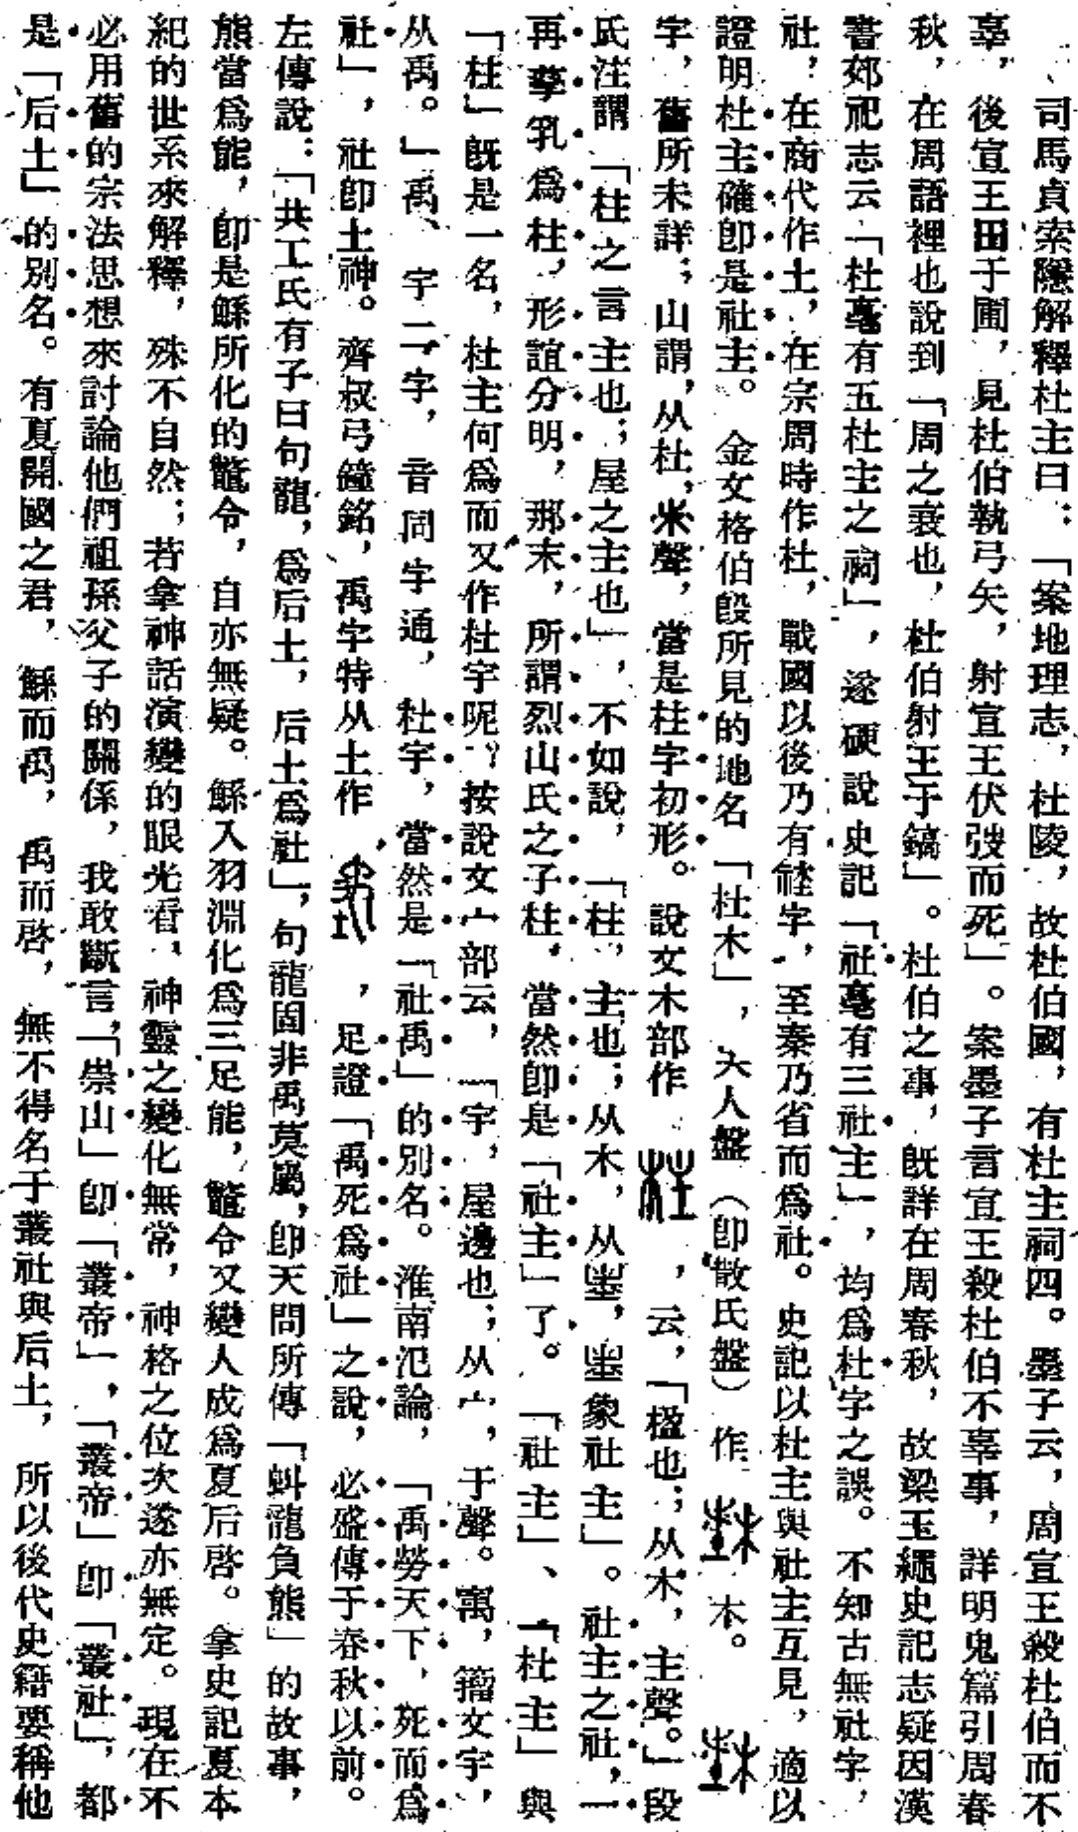 司馬貞索隱解釋杜主曰：「案地理志，杜陵，故杜伯國，有杜主祠四。墨子云，周宣王殺杜伯而不
辜，後宣王田于圃，見杜伯執弓矢，射宣王伏弢而死」。案墨子言宣王殺杜伯不辜事，詳明鬼篇引周春
秋，在周語裡也說到「周之衰也，杜伯射王于鎬」。杜伯之事，旣詳在周春秋，故梁玉繩史記志疑因漢
書郊祀志云「杜亳有五杜主之祠」，遂硬說史記「社亳有三社主」，均爲杜字之誤。不知古無社字，
社，在商代作土，在宗周時作杜，戰國以後乃有𥙭字，至秦乃省而爲社。史記以杜主與社主互見，適以
證明杜主確卽是社主。金文格伯𣪘所見的地名「杜木」，夨人盤（卽散氏盤）作 木。
字，舊所未詳；山謂，从杜，米聲，當是柱字初形。說文木部作 ，云，「楹也；从木，主聲。」段
氏注謂「柱之言主也；屋之主也」，不如說，「柱，主也；从木，从㞷，㞷象社主」。社主之社，一
再孳乳爲柱，形誼分明，那末，所謂烈山氏之子柱，當然卽是「社主」了。「社主」、「杜主」與
「柱」旣是一名，杜主何爲而又作杜宇呢？按說文宀部云，「宇，屋邊也；从宀，于聲。㝢，籀文宇，
从禹。」禹、宇二字，音同字通，杜宇，當然是「社禹」的別名。淮南氾論，「禹勞天下，死而爲
社」，社卽土神。齊叔弓鐘銘，禹字特从土作 ，足證「禹死爲社」之說，必盛傳于春秋以前。
左傳說：「共工氏有子曰句龍，爲后土，后土爲社」，句龍固非禹莫屬，卽天問所傳「虯龍負熊」的故事，
熊當爲能，卽是鯀所化的鼈令，自亦無疑。鯀入羽淵化爲三足能，鼈令又變人成爲夏后啓。拿史記夏本
紀的世系來解釋，殊不自然；若拿神話演變的眼光看，神靈之變化無常，神格之位次遂亦無定。現在不
必用舊的宗法思想來討論他們祖孫父子的關係，我敢斷言，「崇山」卽「叢帝」，「叢帝」卽「叢社」，都
是「后土」的別名。有夏開國之君，鯀而禹，禹而啓，無不得名于叢社與后土，所以後代史籍要稱他